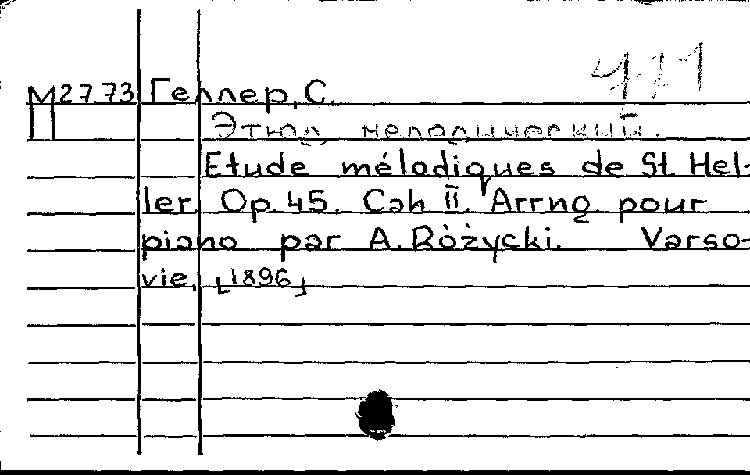 411
М2773 Геллер, С.
II
Этюд мелодический.
Etude mélodiques de St. Hel-
ler. Op. 45. Cah II. Arrng. pour
piano par A. Różycki. Varso-
vie, [1896]